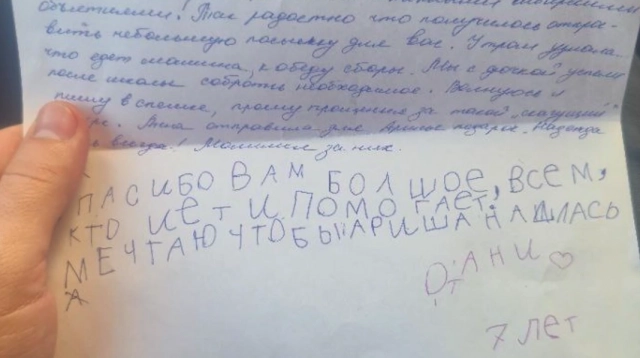 объятиями! Так радостно что получилось отпра-
вить небольшую посылку для вас. Утром узнала,
что едет машина, к обеду сборы. Мы с дочкой успели
после школы собрать необходимое. Волнуюсь и
пишу в спешке, прошу прощения за такой „скачущий"
Аня отправила для Ариши подарок. Надежда
всегда! Молимся за них.
СПАСИБО ВАМ БОЛШОЕ, ВСЕМ,
КТО ИЕТ И ПОМОГАЕТ.
МЕЧТАЮ ЧТОБЫ АРИША НАШЛАСЬ
А
ОТ АНИ ♡
7 ЛЕТ